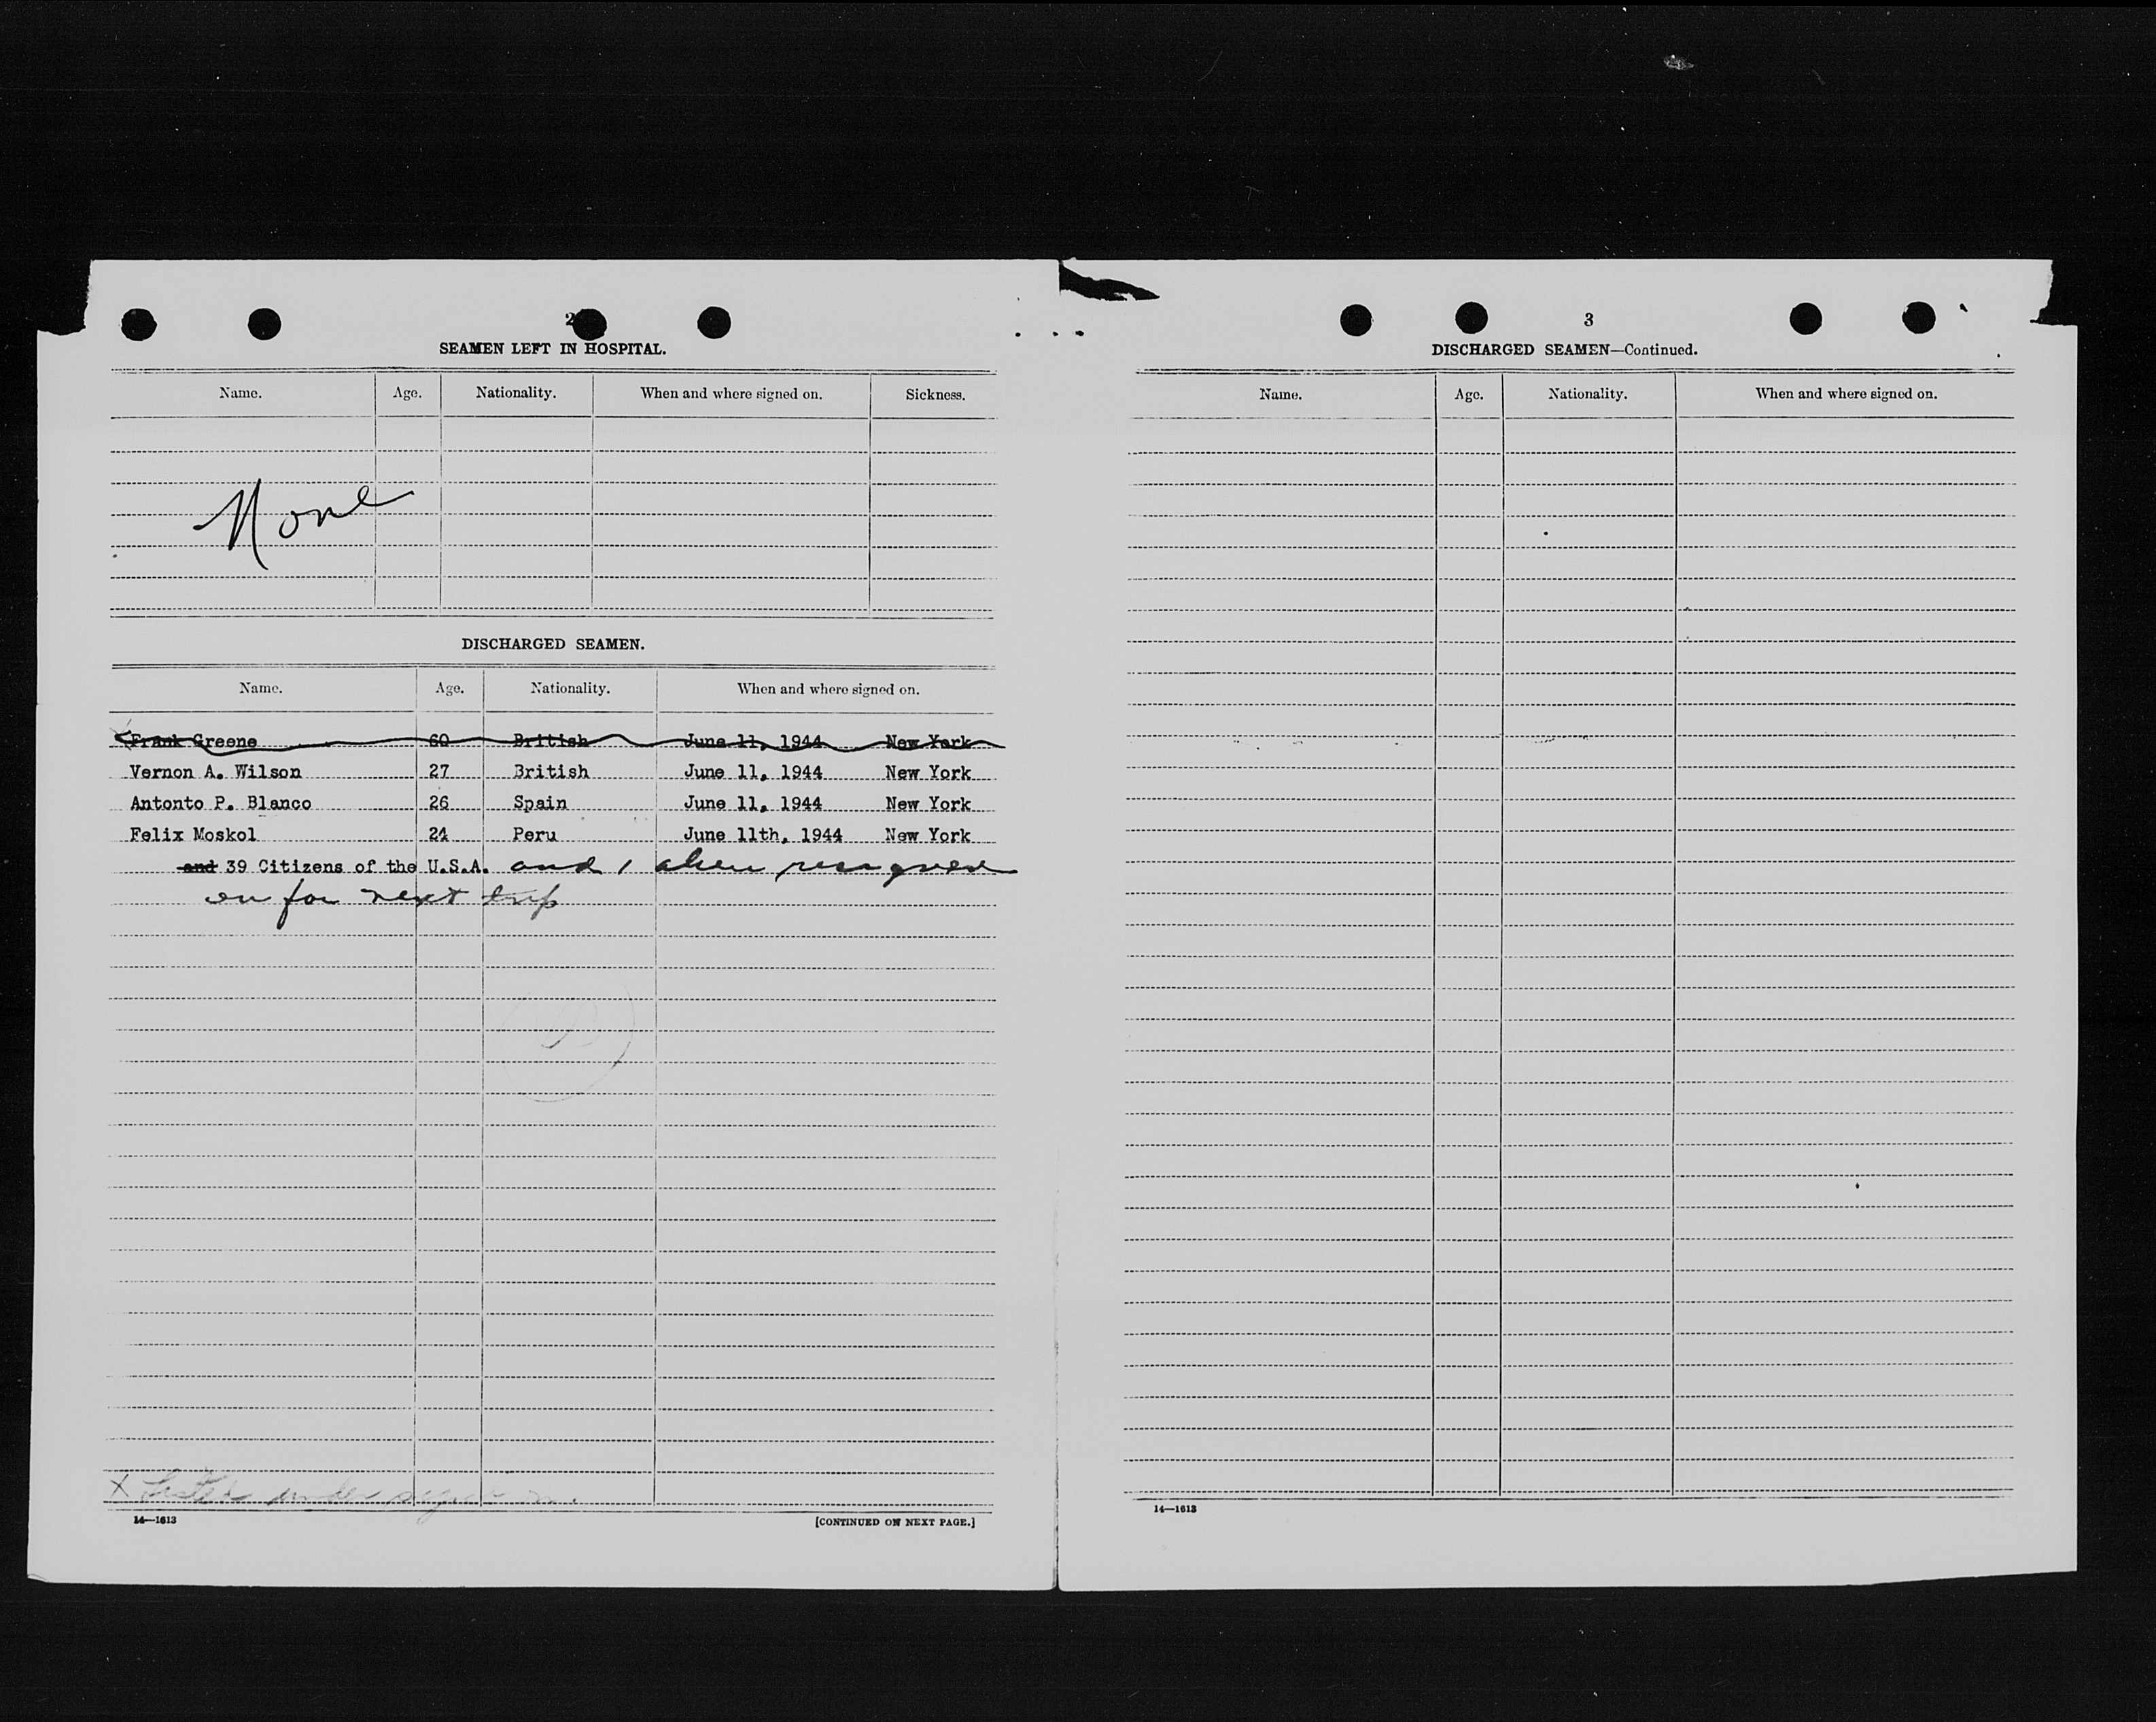 2
SEAMEN LEFT IN HOSPITAL.
Name. Age. Nationality. When and where signed on. Sickness.
None
DISCHARGED SEAMEN.
Name. Age. Nationality. When and where signed on.
Frank Greene 60 British June 11, 1944 New York
Vernon A. Wilson 27 British June 11, 1944 New York
Antonto P. Blanco 26 Spain June 11, 1944 New York
Felix Moskol 24 Peru June 11th, 1944 New York
and 39 Citizens of the U.S.A. and 1 alien resigned
on for next trip
X
14—1613
[CONTINUED ON NEXT PAGE.]
3
DISCHARGED SEAMEN—Continued.
Name. Age. Nationality. When and where signed on.
14—1613